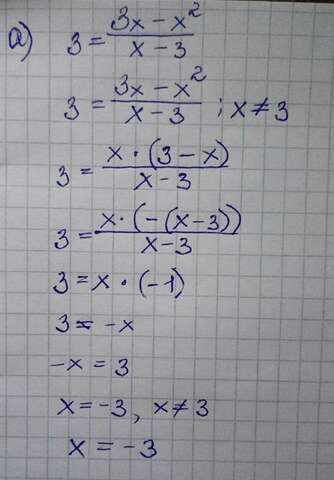 а) 3 = (3x - x²)/(x - 3)
3 = (3x - x²)/(x - 3) ; x ≠ 3
3 = (x · (3 - x))/(x - 3)
3 = (x · (-(x-3)))/(x-3)
3 = x · (-1)
3 = -x
-x = 3
x = -3, x ≠ 3
x = -3